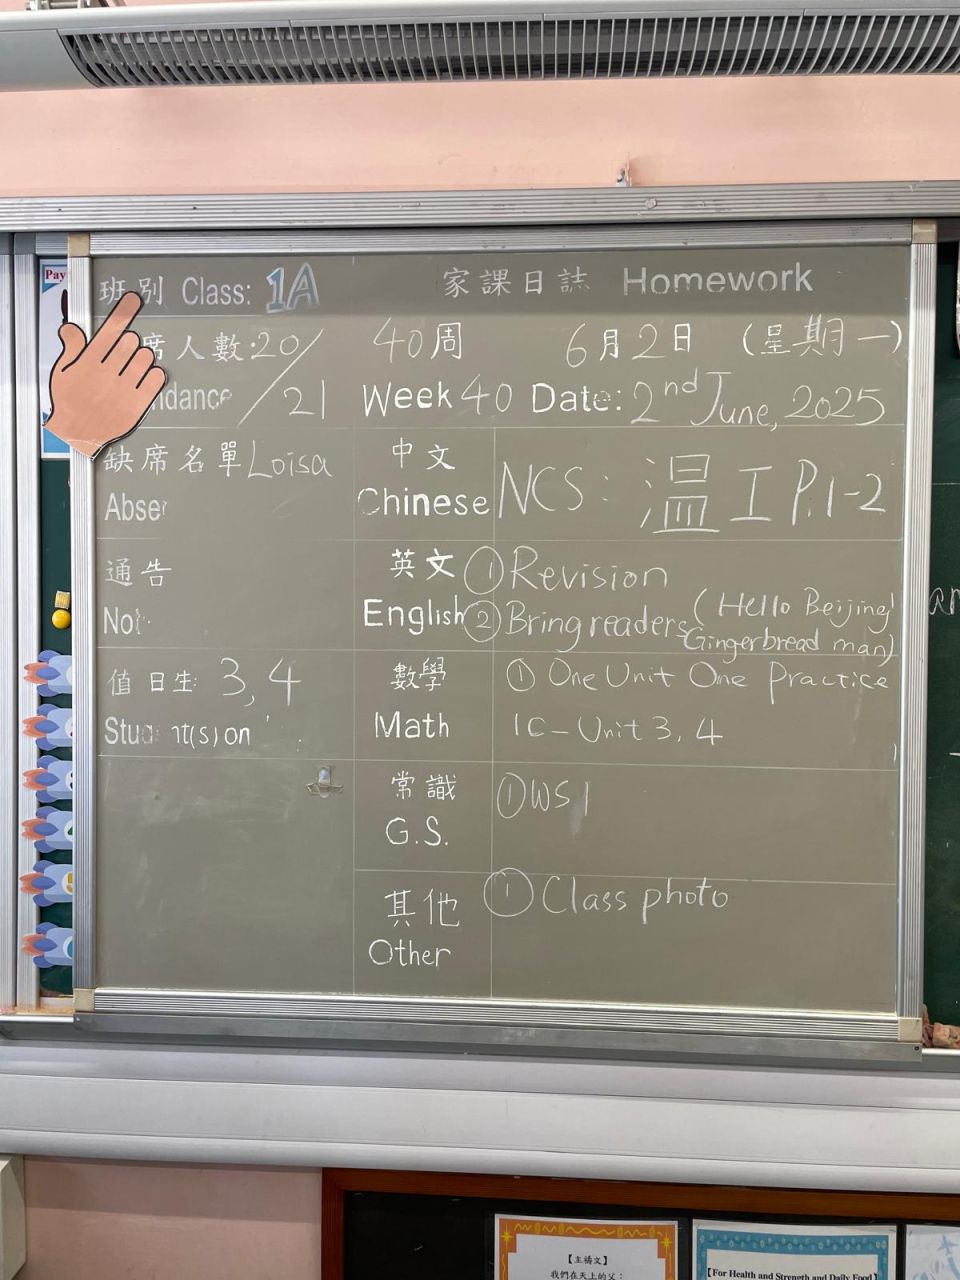 Pay
班別 Class: 1A
家課日誌 Homework
席人數:20/
40周
6月2日 (星期一)
ndance /21
Week 40 Date: 2nd June, 2025
缺席名單 Loisa
中文
Chinese
NCS: 溫工 P.1-2
通告
英文
English
① Revision
② Bring readers (Hello Beijing!
Gingerbread man)
值日生: 3,4
Stu nt(s) on
數學
Math
① One Unit One Practice
1C-Unit 3, 4
常識
G.S.
① WS1
其他
Other
① Class photo
【主禱文】
我們在天上的父：
【For Health and Strength and Daily Food】